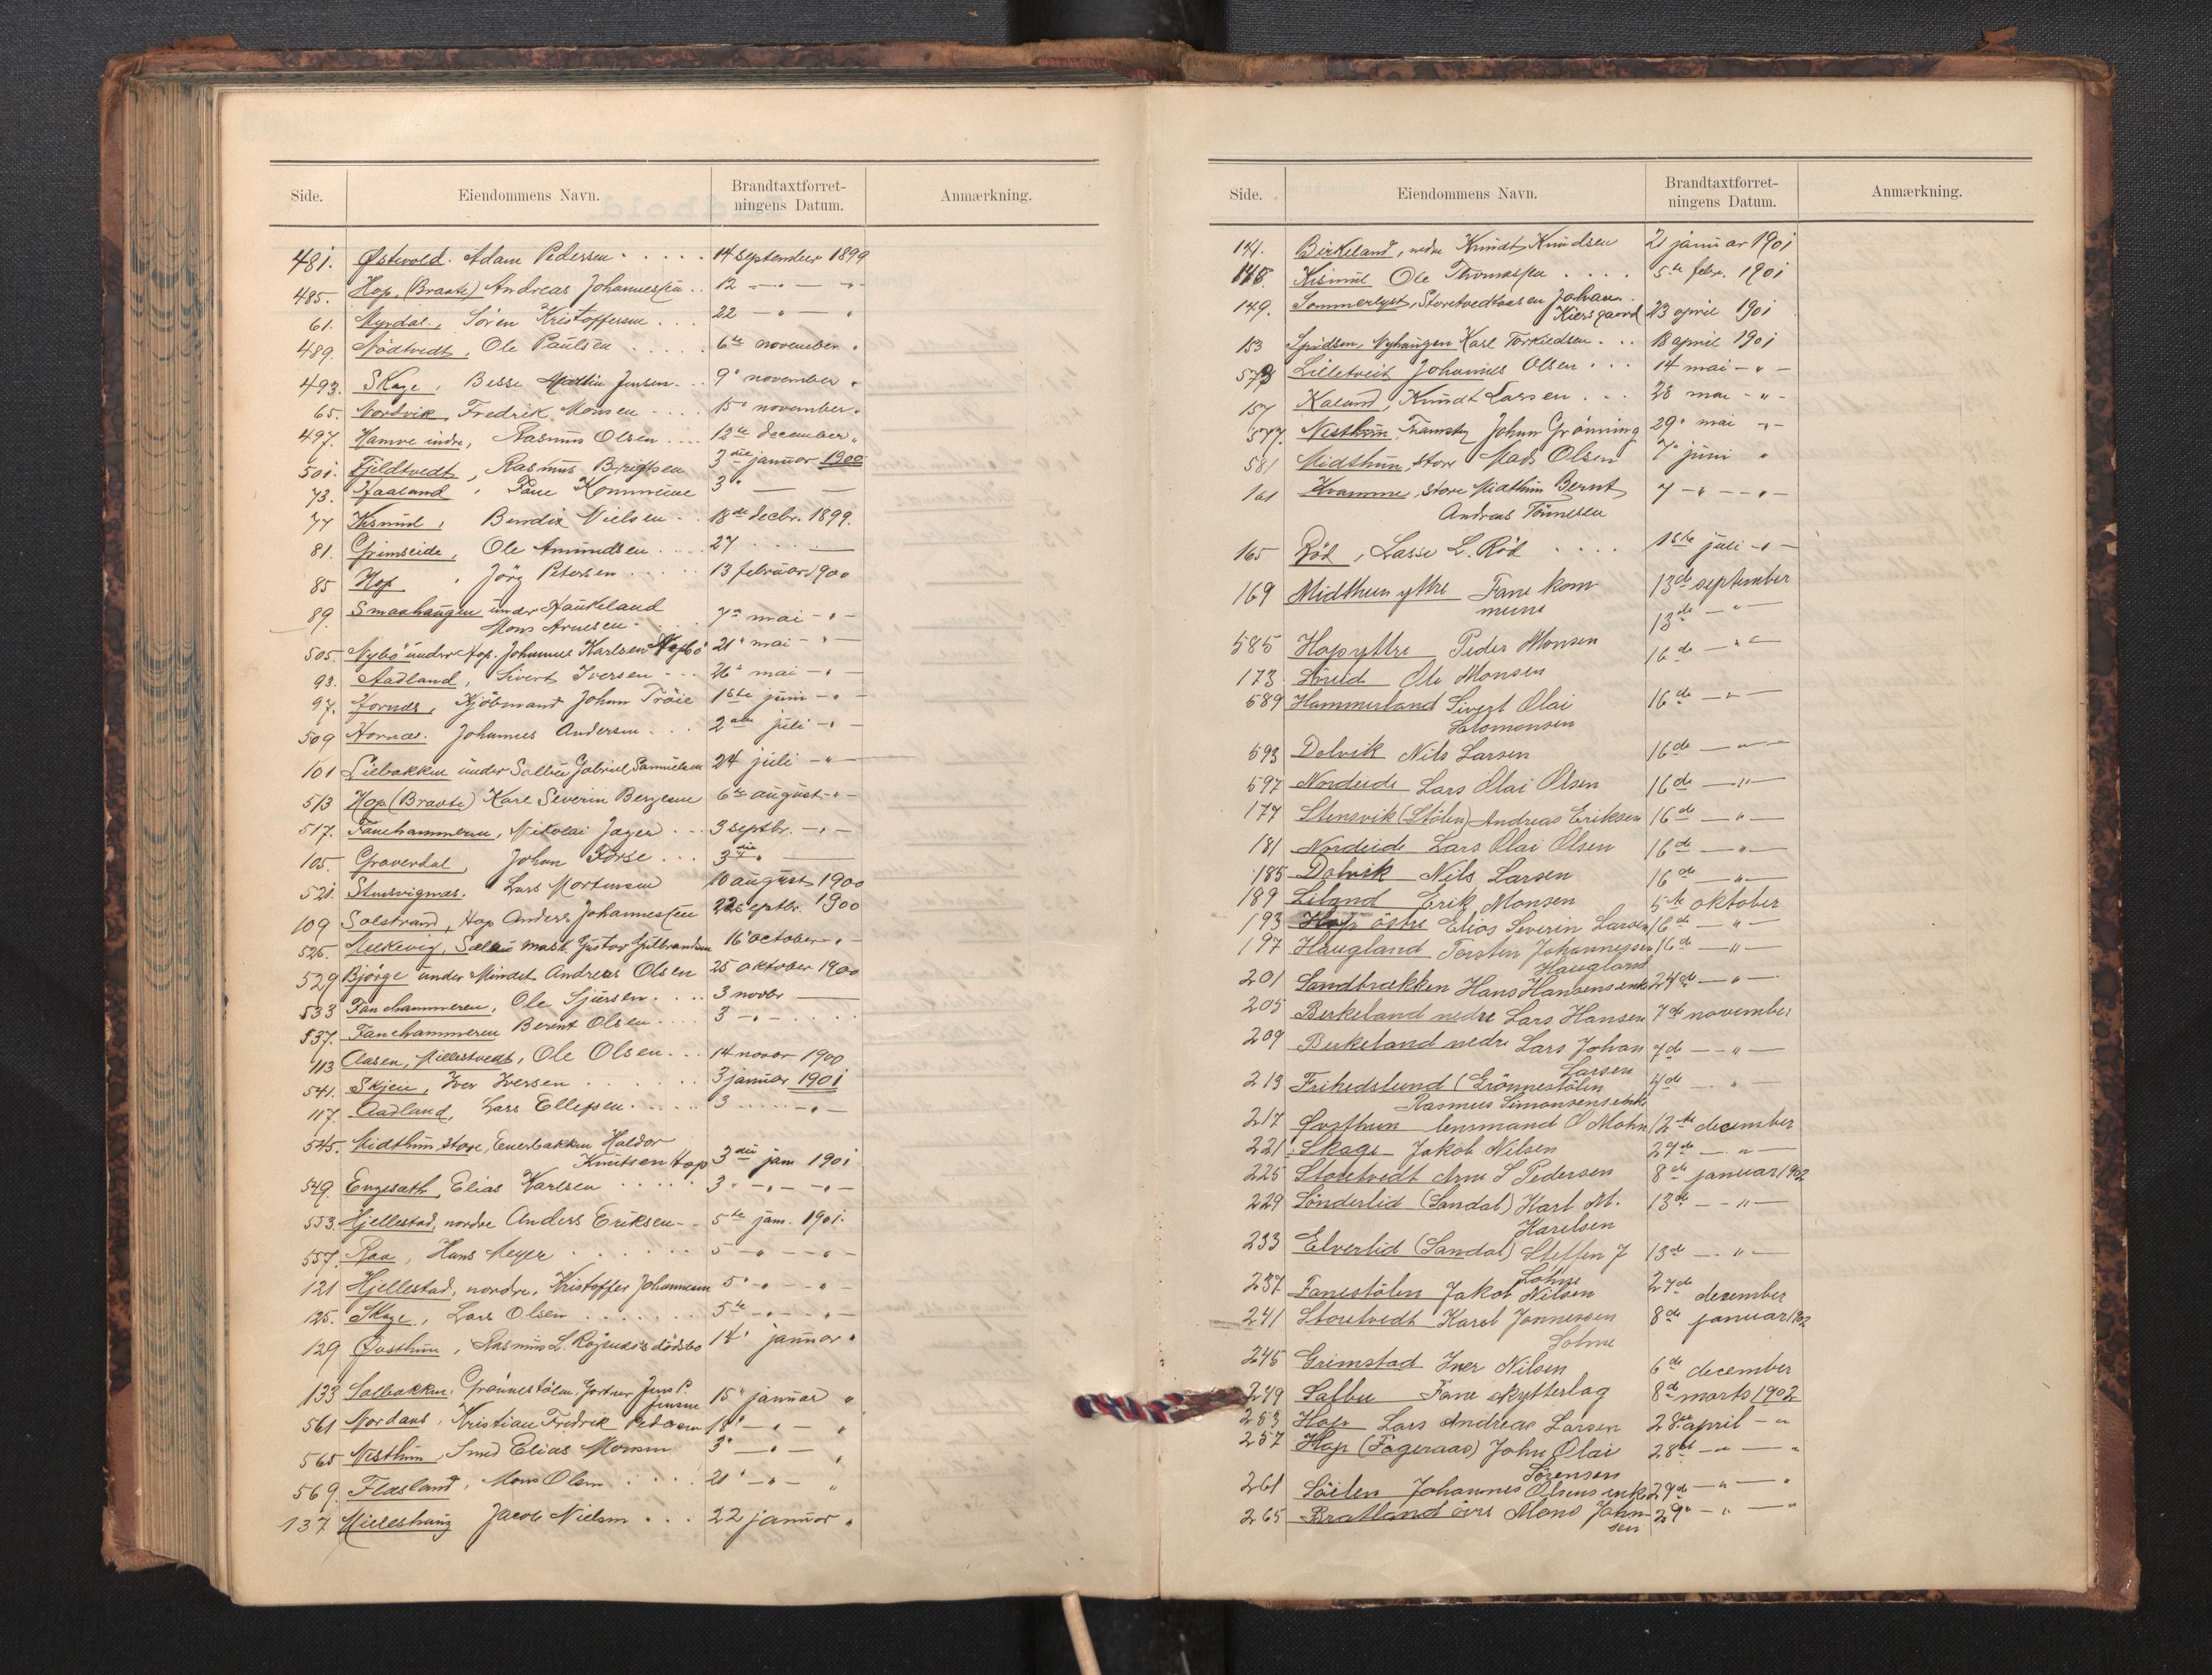 Side. Eiendommens Navn. Brandtaxtforret-ningens Datum. Anmærkning.
481. Østevold. Adam Pedersen 14 september 1899
485. Hop, (Braate) Andreas Johannessen 12 — " — "
61. Myrdal, Sören Kristoffersen 22 — " — "
489. Nödtvedt, Ole Paulsen 6te november "
493. Skage, Besse Jensen 9" november "
65. Nordvik, Fredrik Monsen 15" november "
497. Hamre indre, Rasmus Olsen 12te december "
501. Fjeldtvedt, Rasmus 3die januar 1900
73. Haaland, Fane Kommune 3" — —
77 Kismul, Bendix Nielsen 18de decbr. 1899.
81. Grimseide, Ole Amundsen 27 —
85 Hop, Jörg Petersen 13 februar 1900
89. Smaahaugen under Haukeland
Mons Arnesen 7de mai — " —
505. Nybö under Hop. Johannes Karlsen Nybö 21" mai — " —
93. Aadland, Sivert Iversen 26" mai — " —
97. Hornæs, Kjöbmand Johan Tröie 1ste juni — " —
509 Hornæs. Johannes Andersen 2den juli — " —
101 Liebakken under Salbu Gabriel Samuelsen 24 juli — " —
513 Hop (Braate) Karl Severin Bergesen 6te august — " —
517. Fanehammeren, Nikolai Jager 3 septbr. — " —
105. Graverdal, Johan Forse 3die " —
521. Stensvignæs. Lars Mortensen 10 august 1900
109 Solstrand, Hop Anders Johannessen 22 septbr. 1900
525. Salbu mask. Gustav Gulbrandsen 16 october — " —
529 Bjørge under Mindet Andreas Olsen 25 oktober 1900
533 Fanehammeren, Ole Sjursen 3 novbr —
537. Fanehammeren Berent Olsen 3 — " —
113 Aasen, Ole Olsen 14 novbr 1900
541. Skjeie, Iver Iversen 3 januar 1901
117. Aadland, Lars Ellefsen 3 — " —
545. Midthun store, Haldor
Knutsen Hop 3die jan 1901
549. Engesæth, Elias Karlsen 3" — " — " —
553. Hjellestad, nordre Anders Eriksen 5te jan. 1901.
557. Raa, Hans Meyer 5 — " — " —
121 Hjellestad, nordre, Kristoffer Johannesen 5" — " — " —
125. Skage, Lars Olsen 5te — " — " —
129 Øvsthun, Rasmus L. dödsbo 14" januar "
133 Salbakken, Grönnestölen, Gartner Jens P.
Jensen 15" januar "
561 Nordaas, Kristian Fredrik Pedersen 18" — " — "
565 Nesthun, Smed Elias Monsen 3" — " — "
569. Flæsland, Mons Olsen 21" — " — "
137 Jacob Nielsen 22 januar "
Side. Eiendommens Navn. Brandtaxtforret-ningens Datum. Anmærkning.
141. Birkeland, nedre Knudt Knudsen 21 januar 1901
145. Kismul Ole Thomassen 5te febr. 1901
149. Sommerlyst, Storetvedtaasen Johan
Kiersgaard 23 april 1901
153 Nyhaugen Karl Torkildsen 18 april 1901
573 Lilletveit Johannes Olsen 14 mai — " —
157 Kaland, Knudt Larsen 28 mai — " —
577. Nesthun, Johan Grönning 29" mai — " —
581 Midthun, store Mads Olsen 7" juni "
161 Kvamme, store Midthun Bernt
Andreas Tönnesen 7 — " — — " —
165 Röd, Lasse L. Röd 1ste juli — " —
169 Midthun ytre Fane kom-
mune 13de september
13de — " —
585 Hop ytre Peder Monsen 16de — " —
173 Ole Monsen
589 Hammersland Sivert Olai
Salomonsen 16de — " —
593 Dolvik Nils Larsen 16de — " —
597 Nordeide Lars Olai Olsen 16de — " —
177 Stensvik (Stölen) Andreas Eriksen 16de — " —
181 Nordeide Lars Olai Olsen 16de — " —
185 Dolvik Nils Larsen 16de — " —
189 Liland Erik Monsen 5te oktober
193 Hop östre Elias Severin Larsen 16de — " —
197 Haugland Torsten Johannessen
Haugland 16de — " —
201 Sandbrækken Hans Hansens enke 24de — " —
205 Birkeland nedre Lars Hansen 7de november
209 Birkeland nedre Lars Johan
Larsen 7de — — " —
213 Frihedslund (Grönnestölen
Rasmus Simonsens enke 4de — " —
217 Øvsthun lensmand O Mohn 12te december
221 Skage Jakob Nilsen 27de — " —
225 Storetvedt Arne S Pedersen 8de januar 1902
229 Sönderlid (Sandal) Karl M.
Karelsen 13de — — " —
233 Elverlid (Sandal) Steffen J
Lohne 13de — " —
237 Fanestölen Jakob Nilsen 27de december
241 Storetvedt Karel Jonnessen
Lohne 8de januar 1902
245 Grimstad Iver Nilsen 6de december
249 Salbu Fane skytterlag 8de marts 1902
253 Hop Lars Andreas Larsen 28de april — "
257 Hop (Fageraas) John Olai
Sörensen 28de — " — "
261 Söilen Johannes Olsens enke 29de — " — "
265 Bratland övre Mons John-
sen 29" — " — "